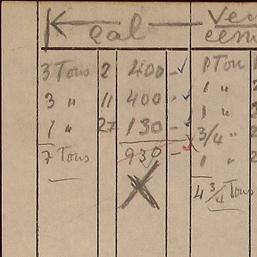 Coal Ven
cem
3 Tons 2 400 - ✓ 1 Ton
3 " 11 400 - ✓ 1 "
1 " 27 130 - ✓ 1 "
7 Tons 930 - 3/4 "
1 "
4 3/4 Tons